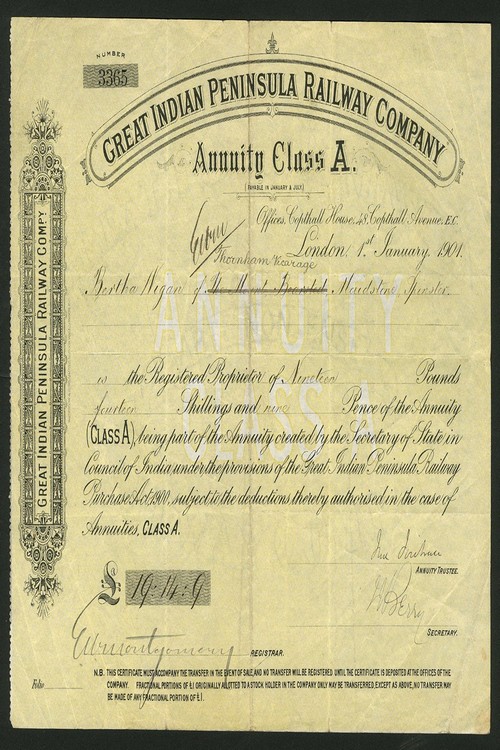 NUMBER
3365
GREAT INDIAN PENINSULA RAILWAY COMPANY
Annuity Class A.
(PAYABLE IN JANUARY & JULY.)
Offices, Copthall House, 48, Copthall Avenue, E.C.
London, 1st January, 1901.
Thornham Vicarage
Bertha Wigan of Maidstone Spinster
ANNUITY
CLASS A
is the Registered Proprietor of Nineteen Pounds
fourteen Shillings and nine Pence of the Annuity
(CLASS A), being part of the Annuity created by the Secretary of State in
Council of India under the provisions of the Great Indian Peninsula Railway
Purchase Act 1900, subject to the deductions thereby authorised in the case of
Annuities, CLASS A.
ANNUITY TRUSTEE.
£ 19.14.9
SECRETARY.
Montgomery REGISTRAR.
N.B. THIS CERTIFICATE MUST ACCOMPANY THE TRANSFER IN THE EVENT OF SALE, AND NO TRANSFER WILL BE REGISTERED UNTIL THE CERTIFICATE IS DEPOSITED AT THE OFFICES OF THE
Folio COMPANY. FRACTIONAL PORTIONS OF £1 ORIGINALLY ALLOTTED TO A STOCK HOLDER IN THE COMPANY ONLY MAY BE TRANSFERRED, EXCEPT AS ABOVE, NO TRANSFER MAY
BE MADE OF ANY FRACTIONAL PORTION OF £1.
GREAT INDIAN PENINSULA RAILWAY COMPY.